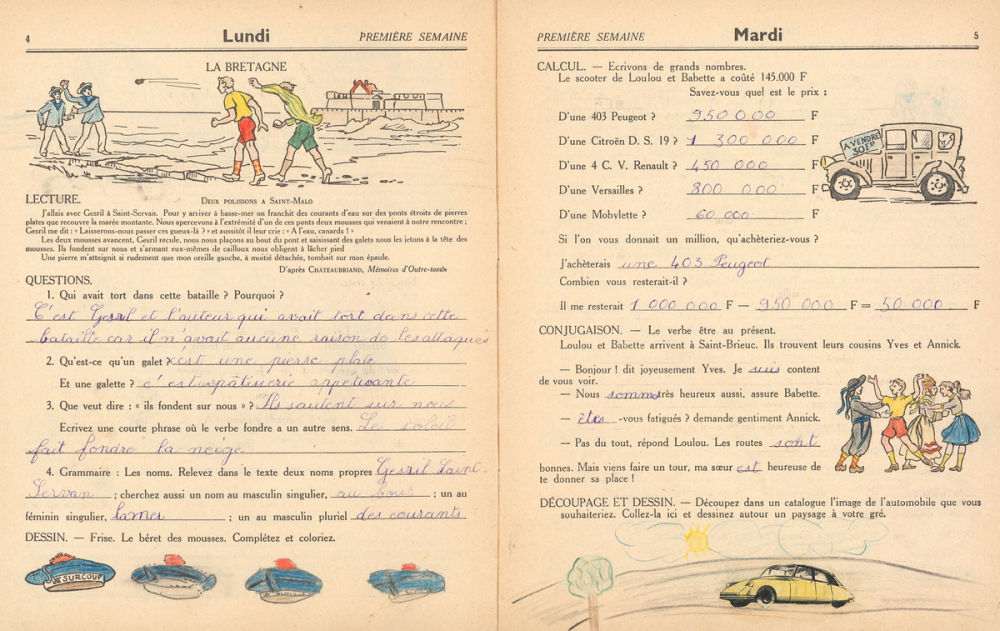 4
Lundi
PREMIÈRE SEMAINE
LA BRETAGNE
LECTURE.
DEUX POLISSONS A SAINT-MALO
J'allais avec Gesril à Saint-Servan. Pour y arriver à basse-mer on franchit des courants d'eau sur des ponts étroits de pierres
plates que recouvre la marée montante. Nous apercevons à l'extrémité d'un de ces ponts deux mousses qui venaient à notre rencontre ;
Gesril me dit : « Laisserons-nous passer ces gueux-là ? » et aussitôt il leur crie : « A l'eau, canards ! »
Les deux mousses avancent, Gesril recule, nous nous plaçons au bout du pont et saisissant des galets nous les jetons à la tête des
mousses. Ils fondent sur nous et s'armant eux-mêmes de cailloux nous obligent à lâcher pied
Une pierre m'atteignit si rudement que mon oreille gauche, à moitié détachée, tombait sur mon épaule.
D'après CHATEAUBRIAND, Mémoires d'Outre-tombe
QUESTIONS.
1. Qui avait tort dans cette bataille ? Pourquoi ?
C'est Gesril et l'auteur qui avait tort dans cette
bataille car il n'avait aucune raison de les attaquer
2. Qu'est-ce qu'un galet ? c'est une pierre plate
Et une galette ? c'est une pâtisserie appétissante
3. Que veut dire : « ils fondent sur nous » ? Ils sautent sur nous
Ecrivez une courte phrase où le verbe fondre a un autre sens. Le soleil
fait fondre la neige
4. Grammaire : Les noms. Relevez dans le texte deux noms propres Gesril Saint-
Servan ; cherchez aussi un nom au masculin singulier, au bout ; un au
féminin singulier, la mer ; un au masculin pluriel des courants
DESSIN. — Frise. Le béret des mousses. Complétez et coloriez.
SURCOUF
PREMIÈRE SEMAINE
Mardi
5
CALCUL. — Ecrivons de grands nombres.
Le scooter de Loulou et Babette a coûté 145.000 F
Savez-vous quel est le prix :
D'une 403 Peugeot ? 950 000 F
D'une Citroën D. S. 19 ? 1 300 000 F
D'une 4 C. V. Renault ? 450 000 F
D'une Versailles ? 800 000 F
D'une Mobylette ? 60 000 F
A VENDRE
Si l'on vous donnait un million, qu'achèteriez-vous ?
J'achèterais une 403 Peugeot
Combien vous resterait-il ?
Il me resterait 1 000 000 F — 950 000 F = 50 000 F
CONJUGAISON. — Le verbe être au présent.
Loulou et Babette arrivent à Saint-Brieuc. Ils trouvent leurs cousins Yves et Annick.
— Bonjour ! dit joyeusement Yves. Je suis content
de vous voir.
— Nous sommes très heureux aussi, assure Babette.
— êtes -vous fatigués ? demande gentiment Annick.
— Pas du tout, répond Loulou. Les routes sont
bonnes. Mais viens faire un tour, ma sœur est heureuse de
te donner sa place !
DÉCOUPAGE ET DESSIN. — Découpez dans un catalogue l'image de l'automobile que vous
souhaiteriez. Collez-la ici et dessinez autour un paysage à votre gré.